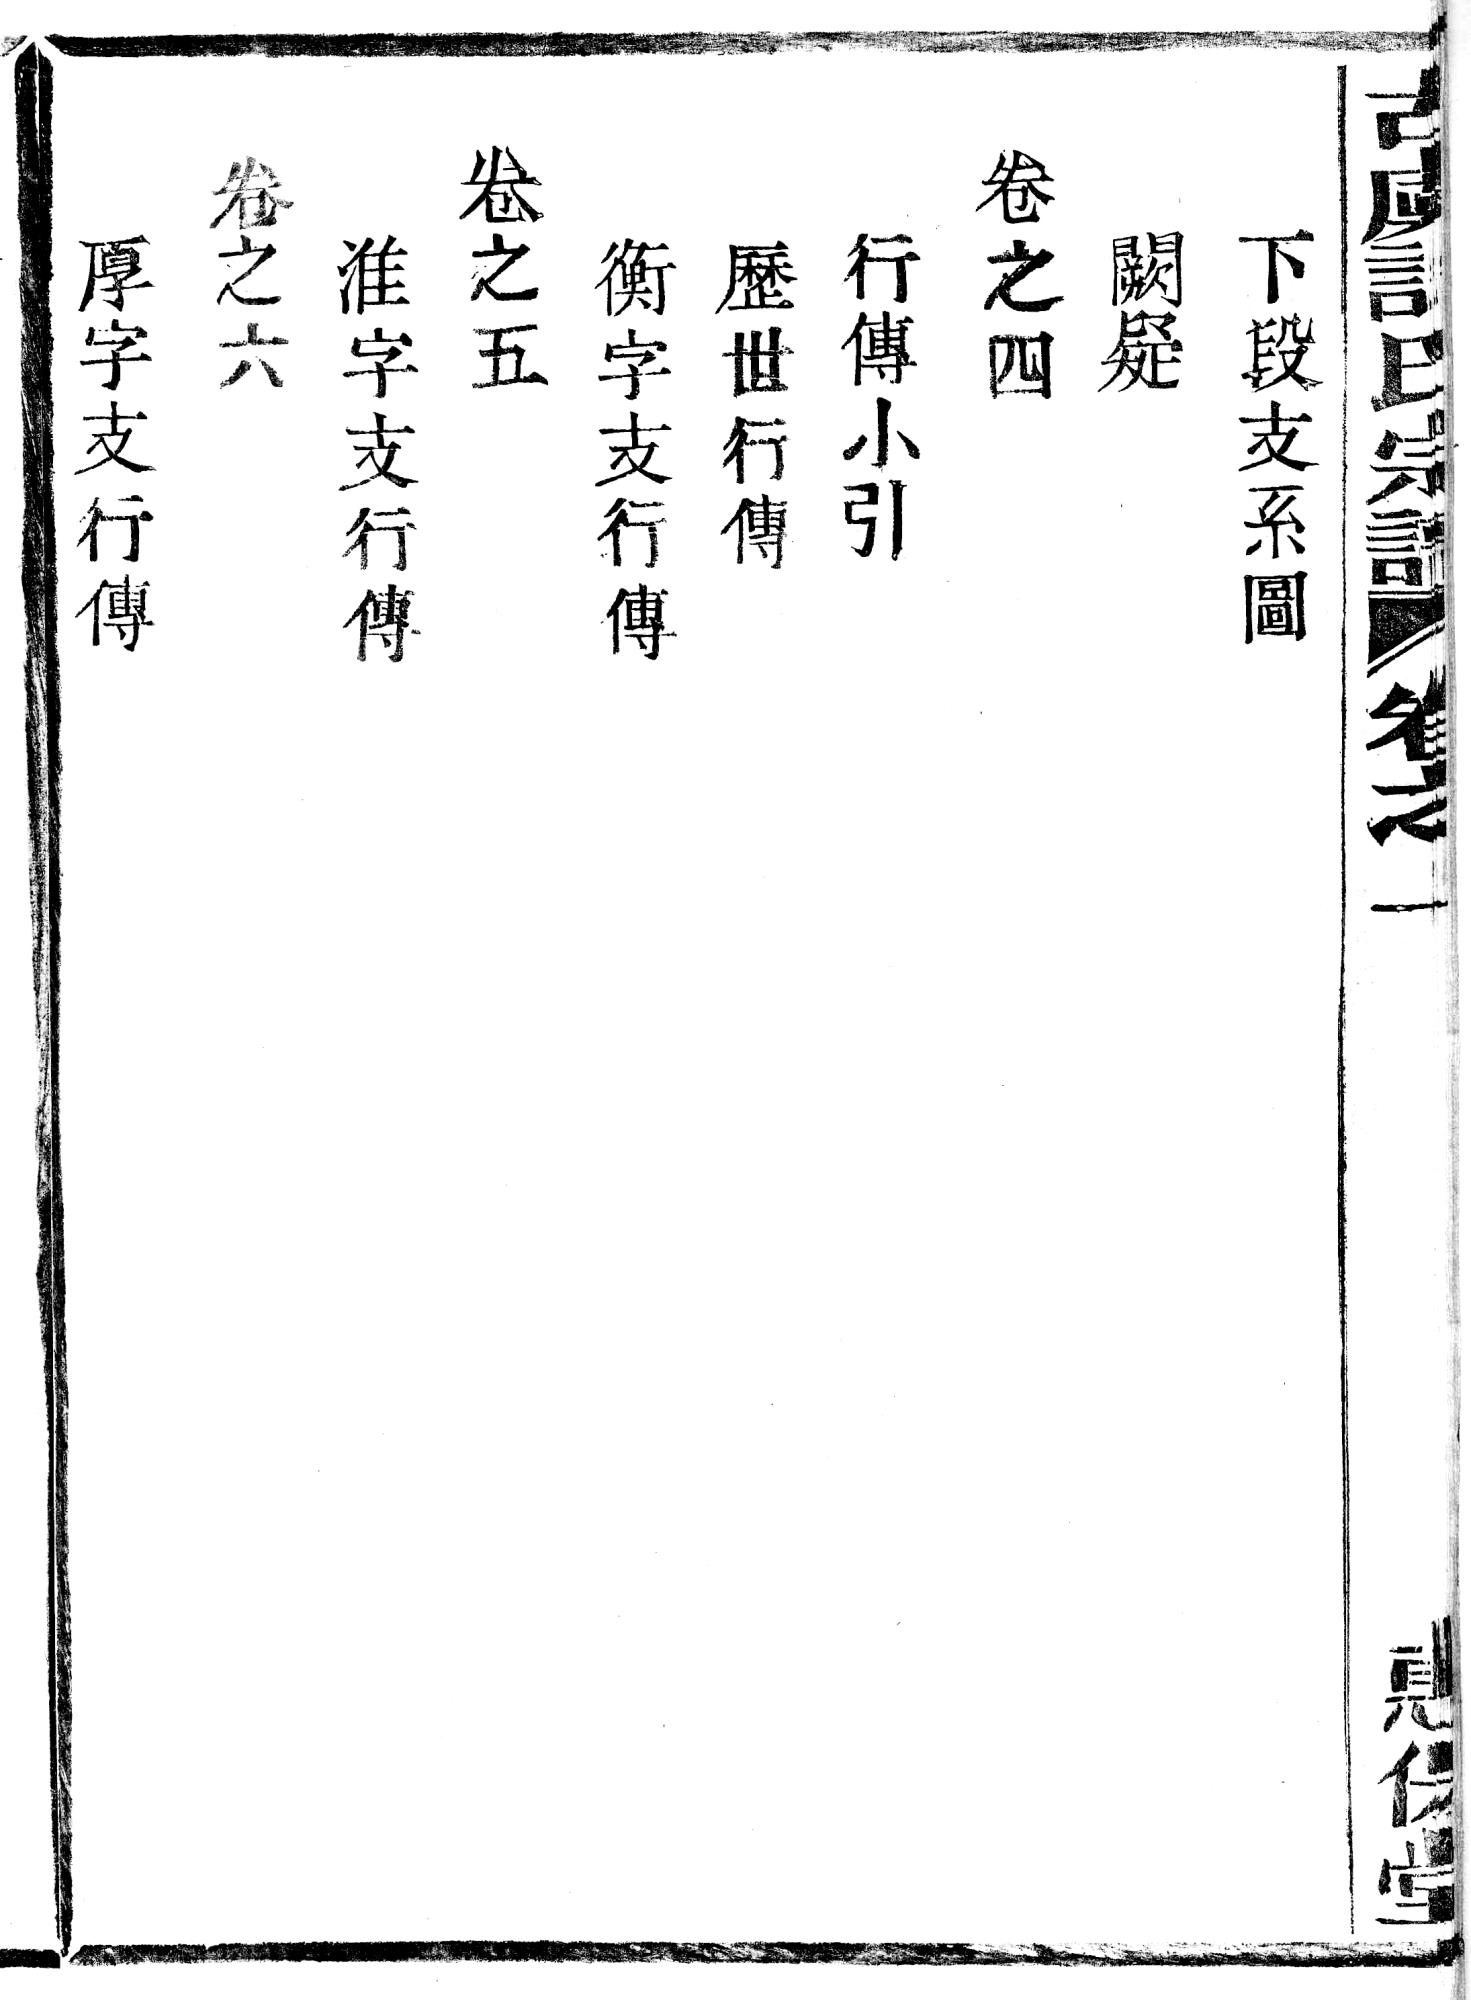 古虞氏宗譜 卷之一
堂
下段支系圖
闕疑
卷之四
行傳小引
歷世行傳
衡字支行傳
卷之五
淮字支行傳
卷之六
厚字支行傳